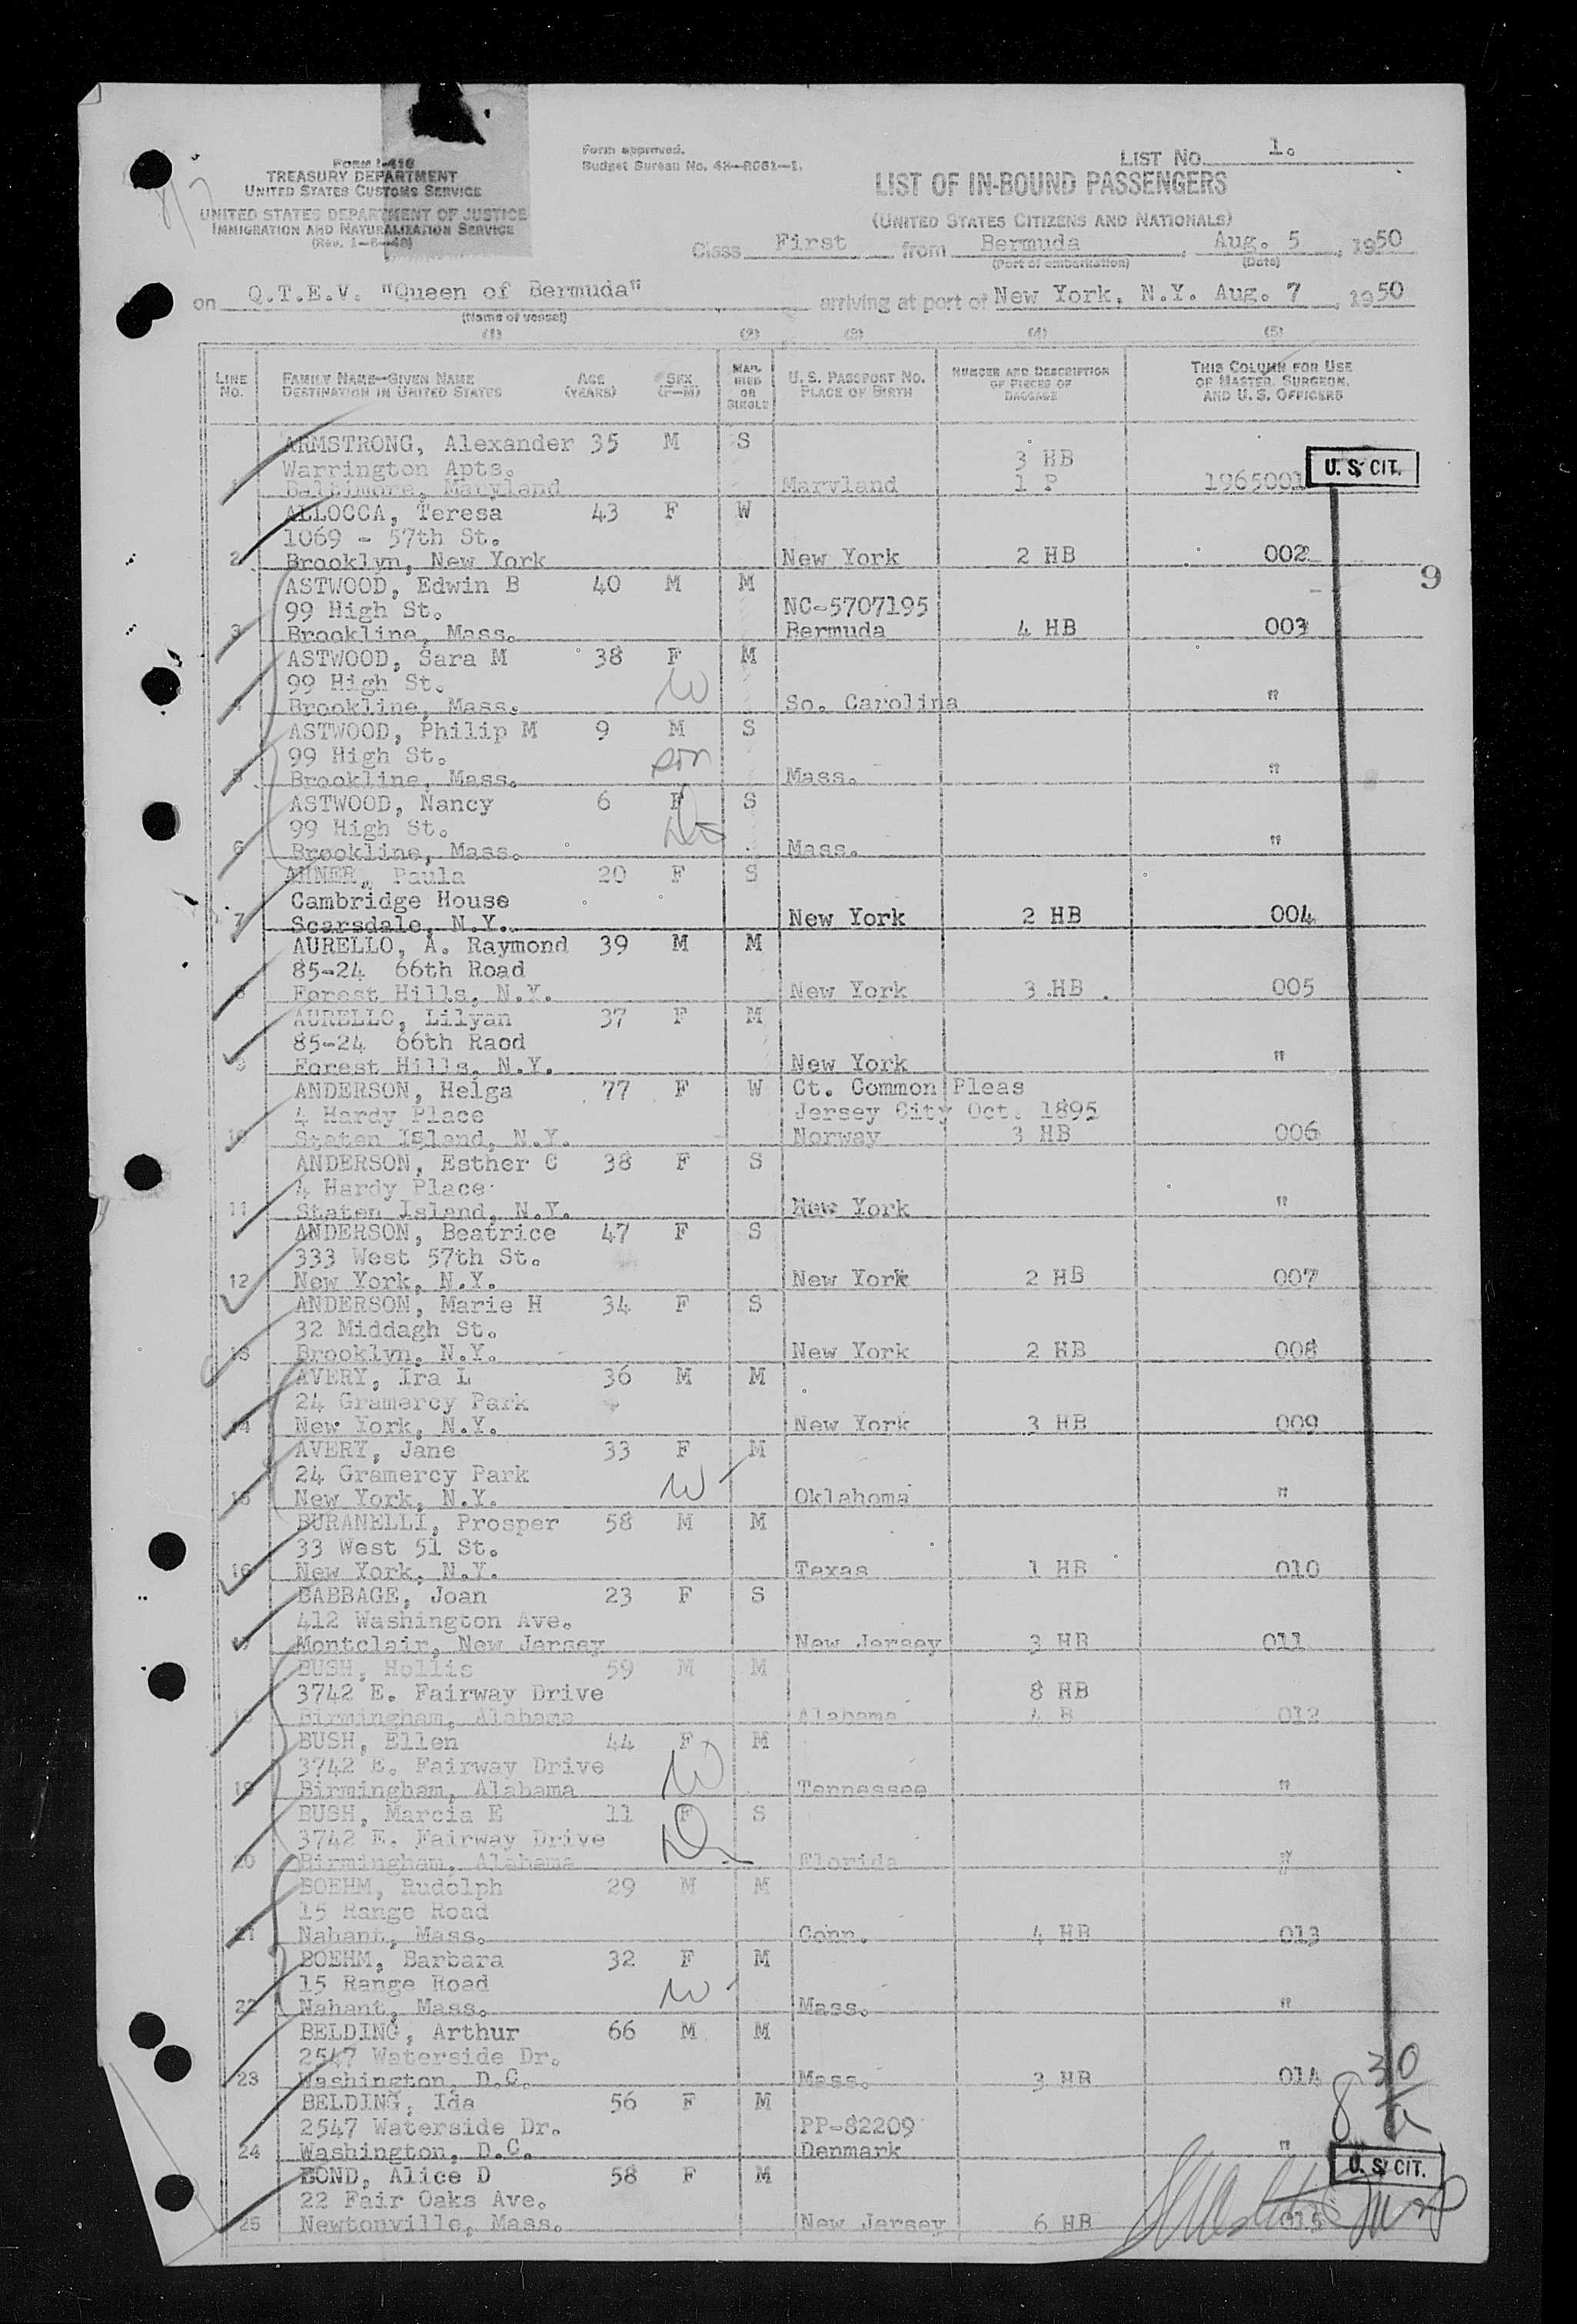 FORM I-416
TREASURY DEPARTMENT
UNITED STATES CUSTOMS SERVICE
UNITED STATES DEPARTMENT OF JUSTICE
IMMIGRATION AND NATURALIZATION SERVICE
Form approved.
Budget Bureau No. 43—R061—1.
LIST No. 1.
LIST OF IN-BOUND PASSENGERS
(UNITED STATES CITIZENS AND NATIONALS)
Class First from Bermuda, Aug. 5, 1950
(Port of embarkation) (Date)
on Q.T.E.V. "Queen of Bermuda" arriving at port of New York, N.Y. Aug. 7, 1950
(Name of vessel)
(1) (2) (3) (4) (5)
LINE No. FAMILY NAME—GIVEN NAME DESTINATION IN UNITED STATES AGE (YEARS) SEX (F—M) MARRIED OR SINGLE U. S. PASSPORT NO. PLACE OF BIRTH NUMBER AND DESCRIPTION OF PIECES OF BAGGAGE THIS COLUMN FOR USE OF MASTER, SURGEON, AND U. S. OFFICERS
ARMSTRONG, Alexander 35 M S
Warrington Apts. 3 HB
1 Baltimore, Maryland Maryland 1 P 1965001 U. S. CIT.
ALLOCCA, Teresa 43 F W
1069 - 57th St.
2 Brooklyn, New York New York 2 HB 002
9
ASTWOOD, Edwin B 40 M M
99 High St. NC-5707195
3 Brookline, Mass. Bermuda 4 HB 003
ASTWOOD, Sara M 38 F M
99 High St. W
4 Brookline, Mass. So. Carolina "
ASTWOOD, Philip M 9 M S
99 High St. son
5 Brookline, Mass. Mass. "
ASTWOOD, Nancy 6 F S
99 High St.
6 Brookline, Mass. Mass. "
AHNER, Paula 20 F S
Cambridge House
7 Scarsdale, N.Y. New York 2 HB 004
AURELLO, A. Raymond 39 M M
85-24 66th Road
8 Forest Hills, N.Y. New York 3 HB 005
AURELLO, Lilyan 37 F M
85-24 66th Raod
9 Forest Hills, N.Y. New York "
ANDERSON, Helga 77 F W Ct. Common Pleas
4 Hardy Place Jersey City Oct. 1895
10 Staten Island, N.Y. Norway 3 HB 006
ANDERSON, Esther C 38 F S
4 Hardy Place
11 Staten Island, N.Y. New York "
ANDERSON, Beatrice 47 F S
333 West 57th St.
12 New York, N.Y. New York 2 HB 007
ANDERSON, Marie H 34 F S
32 Middagh St.
13 Brooklyn, N.Y. New York 2 HB 008
AVERY, Ira L 36 M M
24 Gramercy Park
14 New York, N.Y. New York 3 HB 009
AVERY, Jane 33 F M
24 Gramercy Park W
15 New York, N.Y. Oklahoma "
BURANELLI, Prosper 58 M M
33 West 51 St.
16 New York, N.Y. Texas 1 HB 010
BABBAGE, Joan 23 F S
412 Washington Ave.
17 Montclair, New Jersey New Jersey 3 HB 011
BUSH, Hollis 59 M M
3742 E. Fairway Drive 8 HB
18 Birmingham, Alabama Alabama 4 B 012
BUSH, Ellen 44 F M
3742 E. Fairway Drive W
19 Birmingham, Alabama Tennessee "
BUSH, Marcia E 11 F S
3742 E. Fairway Drive
20 Birmingham, Alabama Florida "
BOEHM, Rudolph 29 M M
15 Range Road
21 Nahant, Mass. Conn. 4 HB 013
BOEHM, Barbara 32 F M
15 Range Road W
22 Nahant, Mass. Mass. "
BELDING, Arthur 66 M M
2547 Waterside Dr.
23 Washington, D.C. Mass. 3 HB 014
BELDING, Ida 56 F M
2547 Waterside Dr. PP-82209
24 Washington, D.C. Denmark "
BOND, Alice D 58 F M U. S. CIT.
22 Fair Oaks Ave.
25 Newtonville, Mass. New Jersey 6 HB 015